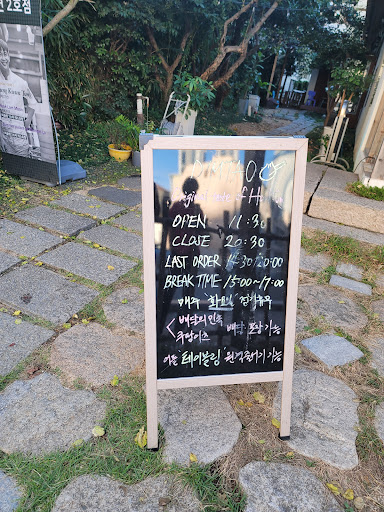 2호점
OPEN 11:30
CLOSE 20:30
LAST ORDER 14:30/20:00
BREAK TIME 15:00~17:00
매주 '화요일' 정기휴무
< 배달의민족
쿠팡이츠 배달, 포장 가능
어플 '테이블링' 원격줄서기 가능